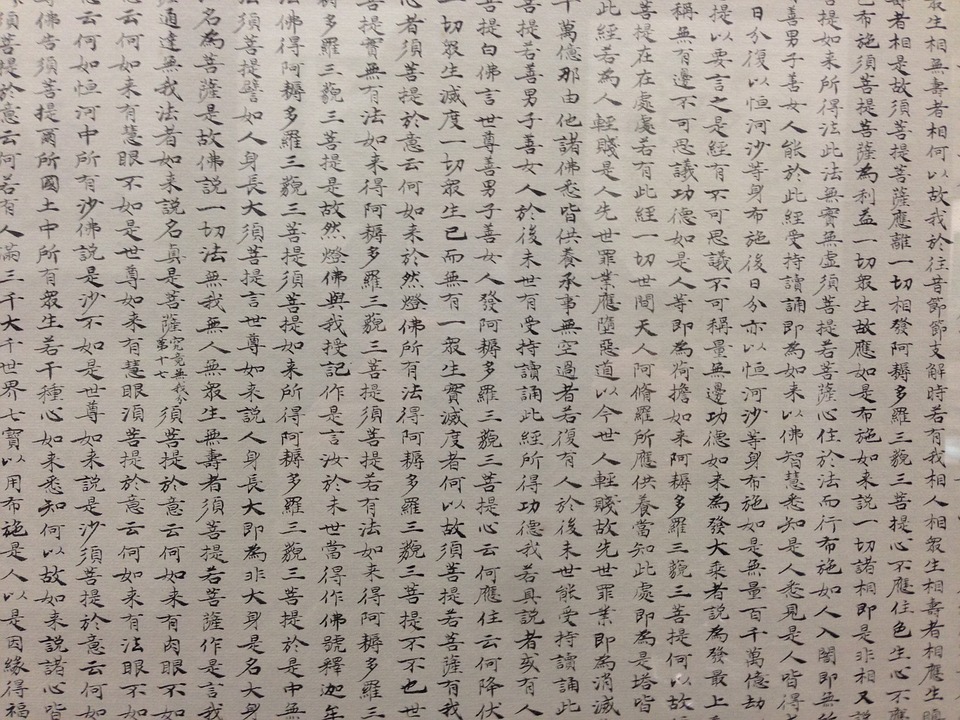 衆生相無壽者相何以故我於往昔節節支解時若有我相人相衆生相壽者相應生瞋
壽者相是故須菩提菩薩應離一切相發阿耨多羅三藐三菩提心不應住色生心不
布施須菩提菩薩為利益一切衆生故應如是布施如来說一切諸相即是非相又說
菩提如来所得法此法無實無虛須菩提若菩薩心住於法而行布施如人入闇即無所
善男子善女人能於此經受持讀誦即為如来以佛智慧悉知是人悉見是人皆得
日分復以恒河沙等身布施後日分亦以恒河沙等身布施如是無量百千萬億劫
提以要言之是經有不可思議不可稱量無邊功德如来為發大乘者說為發最上
稱無有邊不可思議功德如是人等即為荷擔如来阿耨多羅三藐三菩提何以故
菩提在在處處若有此經一切世間天人阿脩羅所應供養當知此處即為是塔皆
此經若為人輕賤是人先世罪業應墮惡道以今世人輕賤故先世罪業即為消滅
千萬億那由他諸佛悉皆供養承事無空過者若復有人於後末世能受持讀誦此
菩提若善男子善女人於後末世有受持讀誦此經所得功德我若具說者或有人
菩提白佛言世尊善男子善女人發阿耨多羅三藐三菩提心云何應住云何降伏
一切衆生滅度一切衆生已而無有一衆生實滅度者何以故須菩提若菩薩有我
心者須菩提於意云何如来於然燈佛所有法得阿耨多羅三藐三菩提不不也世
菩提實無有法如来得阿耨多羅三藐三菩提須菩提若有法如来得阿耨多羅三
耨多羅三藐三菩提是故然燈佛與我授記作是言汝於来世當得作佛號釋迦牟
佛得阿耨多羅三藐三菩提須菩提如来所得阿耨多羅三藐三菩提於是中無
法須菩提譬如人身長大須菩提言世尊如来說人身長大即為非大身是名大身
名為菩薩是故佛說一切法無我無人無衆生無壽者須菩提若菩薩作是言我
通達無我法者如来說名真是菩薩究竟無我分第十七須菩提於意云何如来有肉眼不如
云何如来有慧眼不如是世尊如来有慧眼須菩提於意云何如来有法眼不如
云何如恒河中所有沙佛說是沙不如是世尊如来說是沙須菩提於意云何如
佛告須菩提爾所國土中所有衆生若干種心如来悉知何以故如来說諸心皆
須菩提於意云何若有人滿三千大千世界七寶以用布施是人以是因緣得福